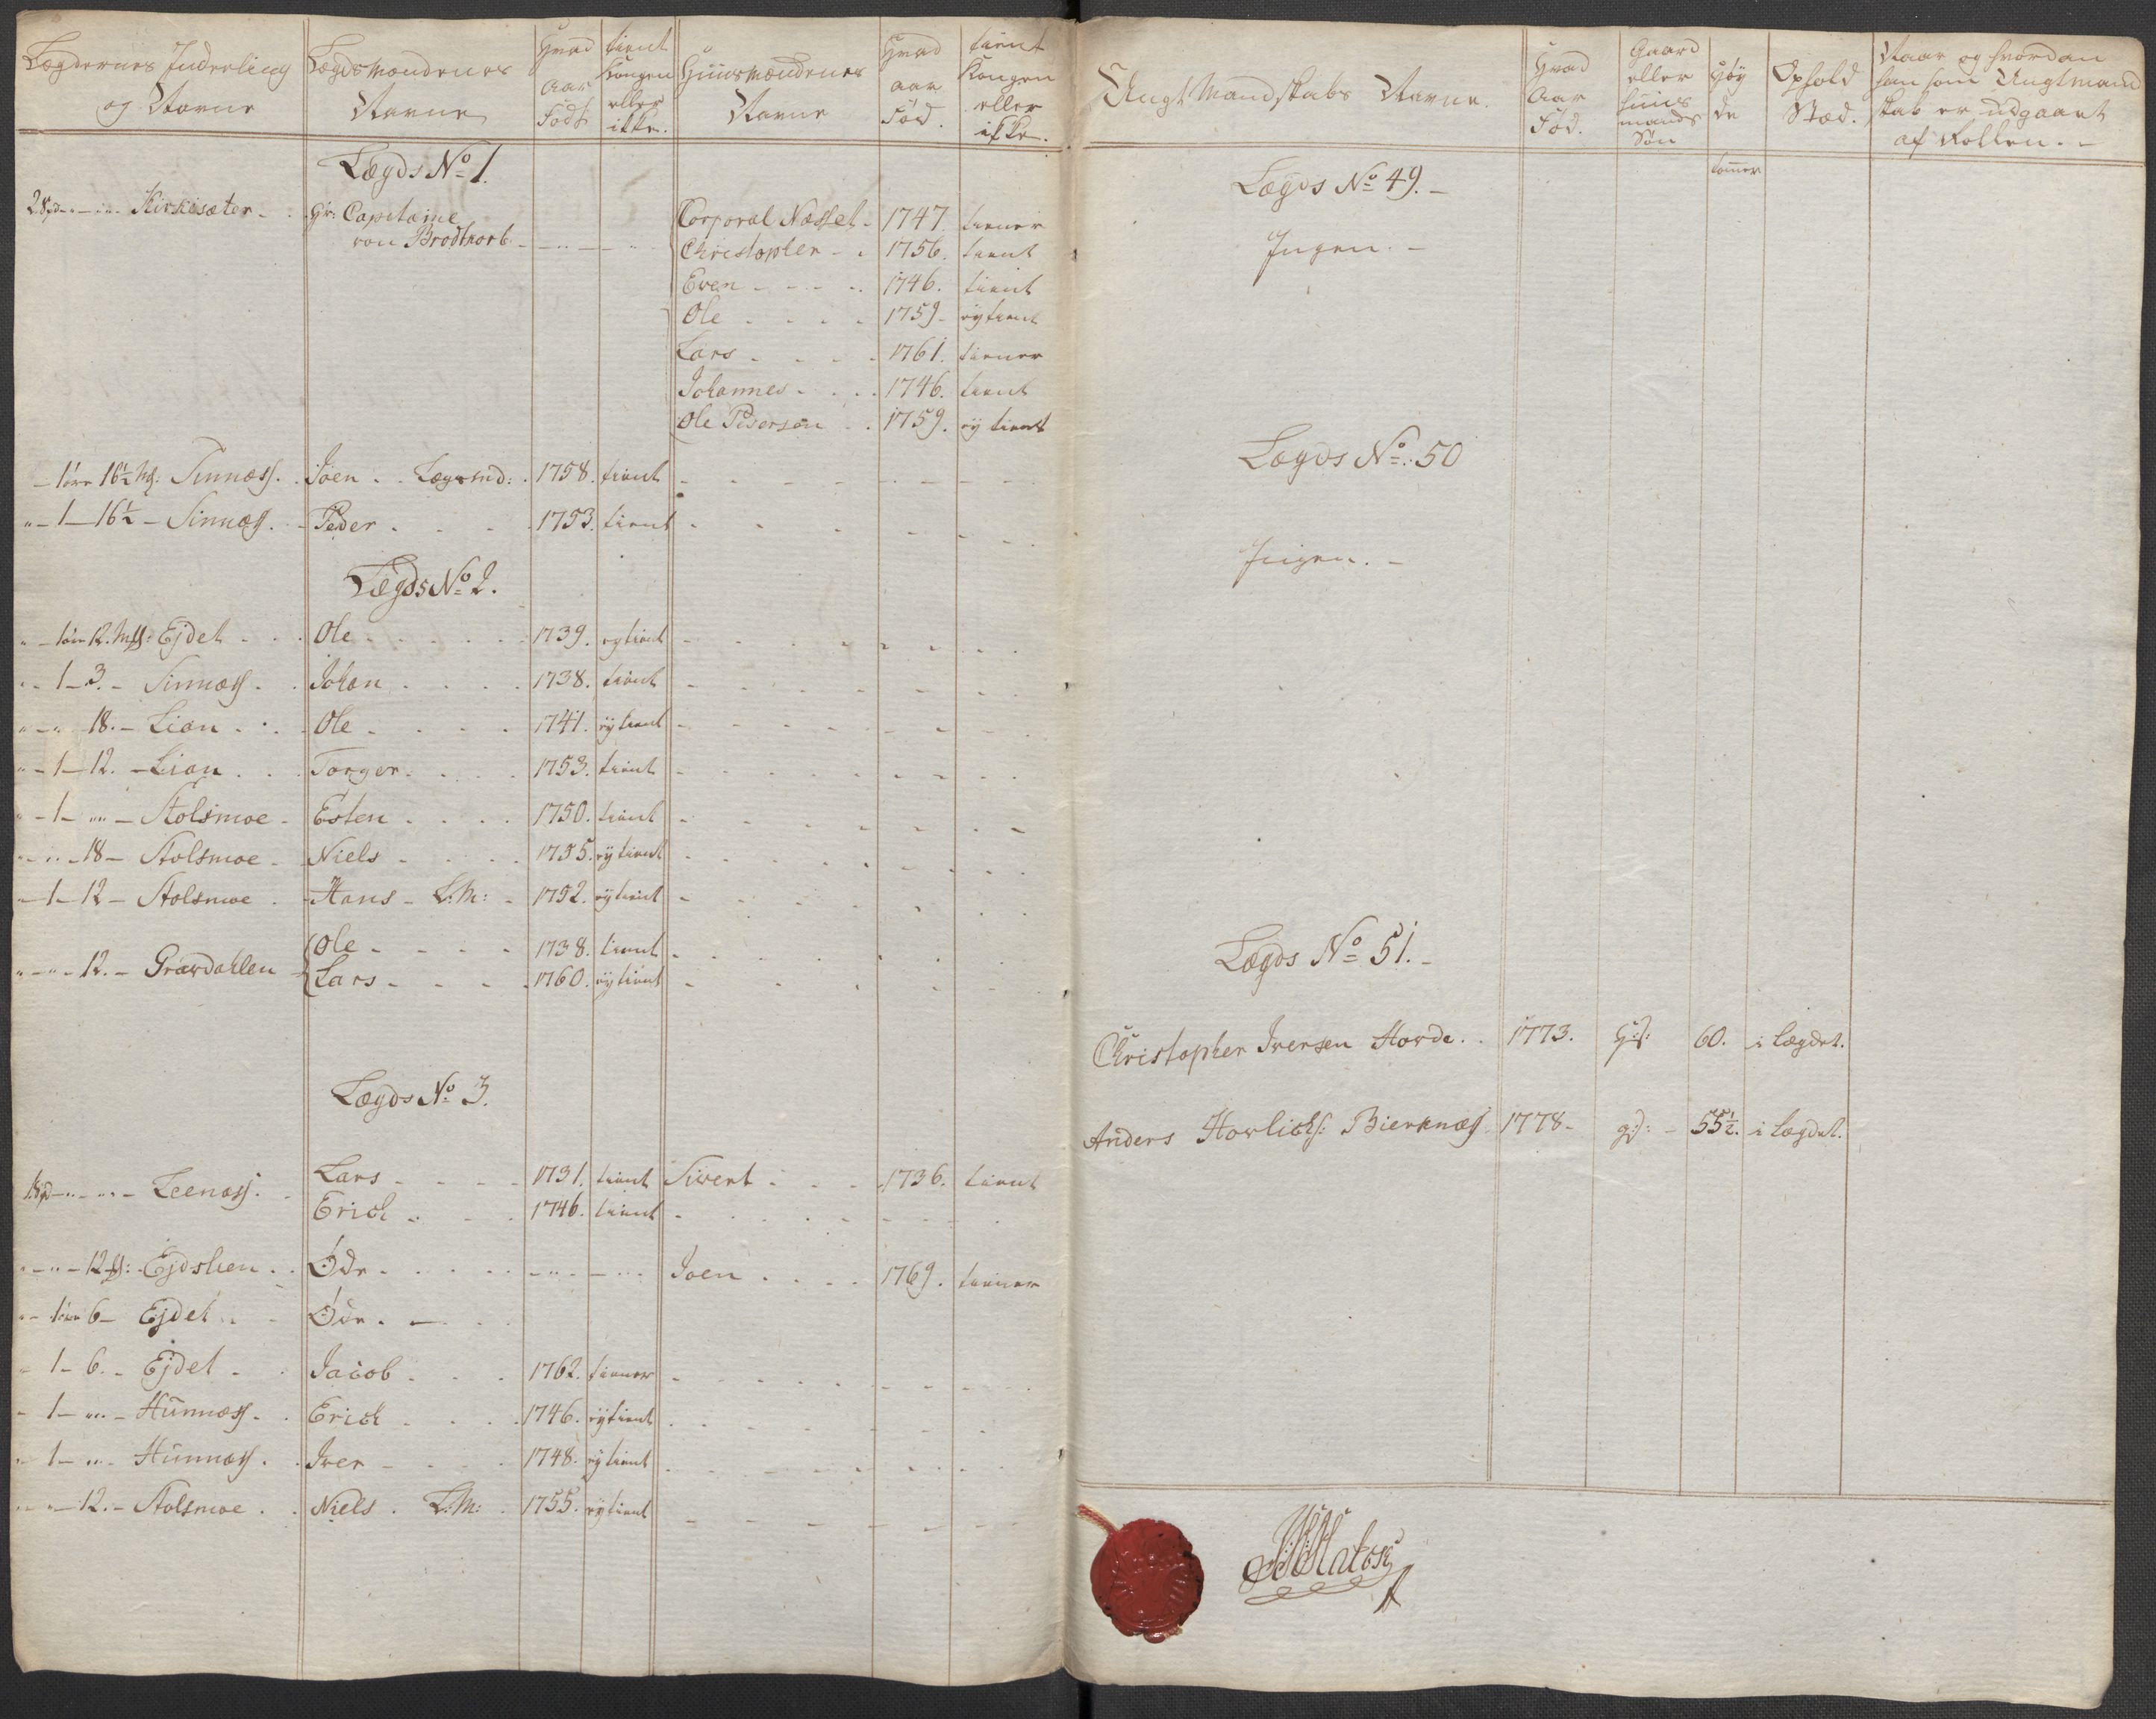 Lægdernes Inderling og Navne | Lægdsmændenes Navne | Hvad Aar Født | tient Kongen eller ikke. | Huusmændenes Navne | Hvad aar Fød. | tient Kongen eller ikke.
Lægds No 1.
Kirkisæter - Hr: Capitaine von Brodtkorb - Corporal Næsset - 1747. tiener
Christopher - 1756. tient
Even - 1746. tient
Ole - 1759 - ey tient
Lars - 1761. tiener
Johannes - 1746. tient
Ole Pedersøn - 1759. ey tient
1 ør 16½ Mk: Sinnæss. Joen - Lægsmd: 1758. tient
1 - 16½ - Sinnæss. Peder - 1753. tient
Lægds No 2.
12. Ejdet - Ole - 1739. ey tient
1 - 3. - Sinnæss - Johan - 1738. tient
18. - Lian - Ole - 1741. ey tient
1 - 12. - Lian - Torger - 1753. tient
1 - Stolsmoe - Esten - 1750. tient
18 - Stolsmoe - Niels - 1755. ey tient
1 - 12 - Stolsmoe - Hans - L:M: - 1752. ey tient
12. - Grævdahlen - Ole - 1738. tient
Lars - 1760. ey tient
Lægds No 3.
Leenæss. Lars - 1731. tient Sivert - 1736. tient
Erich - 1746. tient
12 Ejdslien - Øde - Joen - 1769. tiener
6 - Ejdet - Øde -
1 - 6. - Ejdet - Jacob - 1762. tiener
1 - Hunnæss - Erich - 1746. ey tient
1 - Hunnæss - Iver - 1748. ey tient
12. - Stolsmoe - Niels - L:M: 1755. ey tient
Ungt Mandskabs Navne. | Hvad Aar Fød. | Gaard eller huus mands Søn | Høy de | Ophold Stæd. | Naar og hvordan han som Ungtmand skab er udgaaet af Rollen. -
tomer
Lægds No 49. -
Ingen. -
Lægds No: 50
Ingen. -
Lægds No 51. -
Christopher Iversen Hovde. 1773. 60. i Lægdet.
Anders Hovlichs: Bierknæs 1778 - g:s: - 55½. i Lægdet.